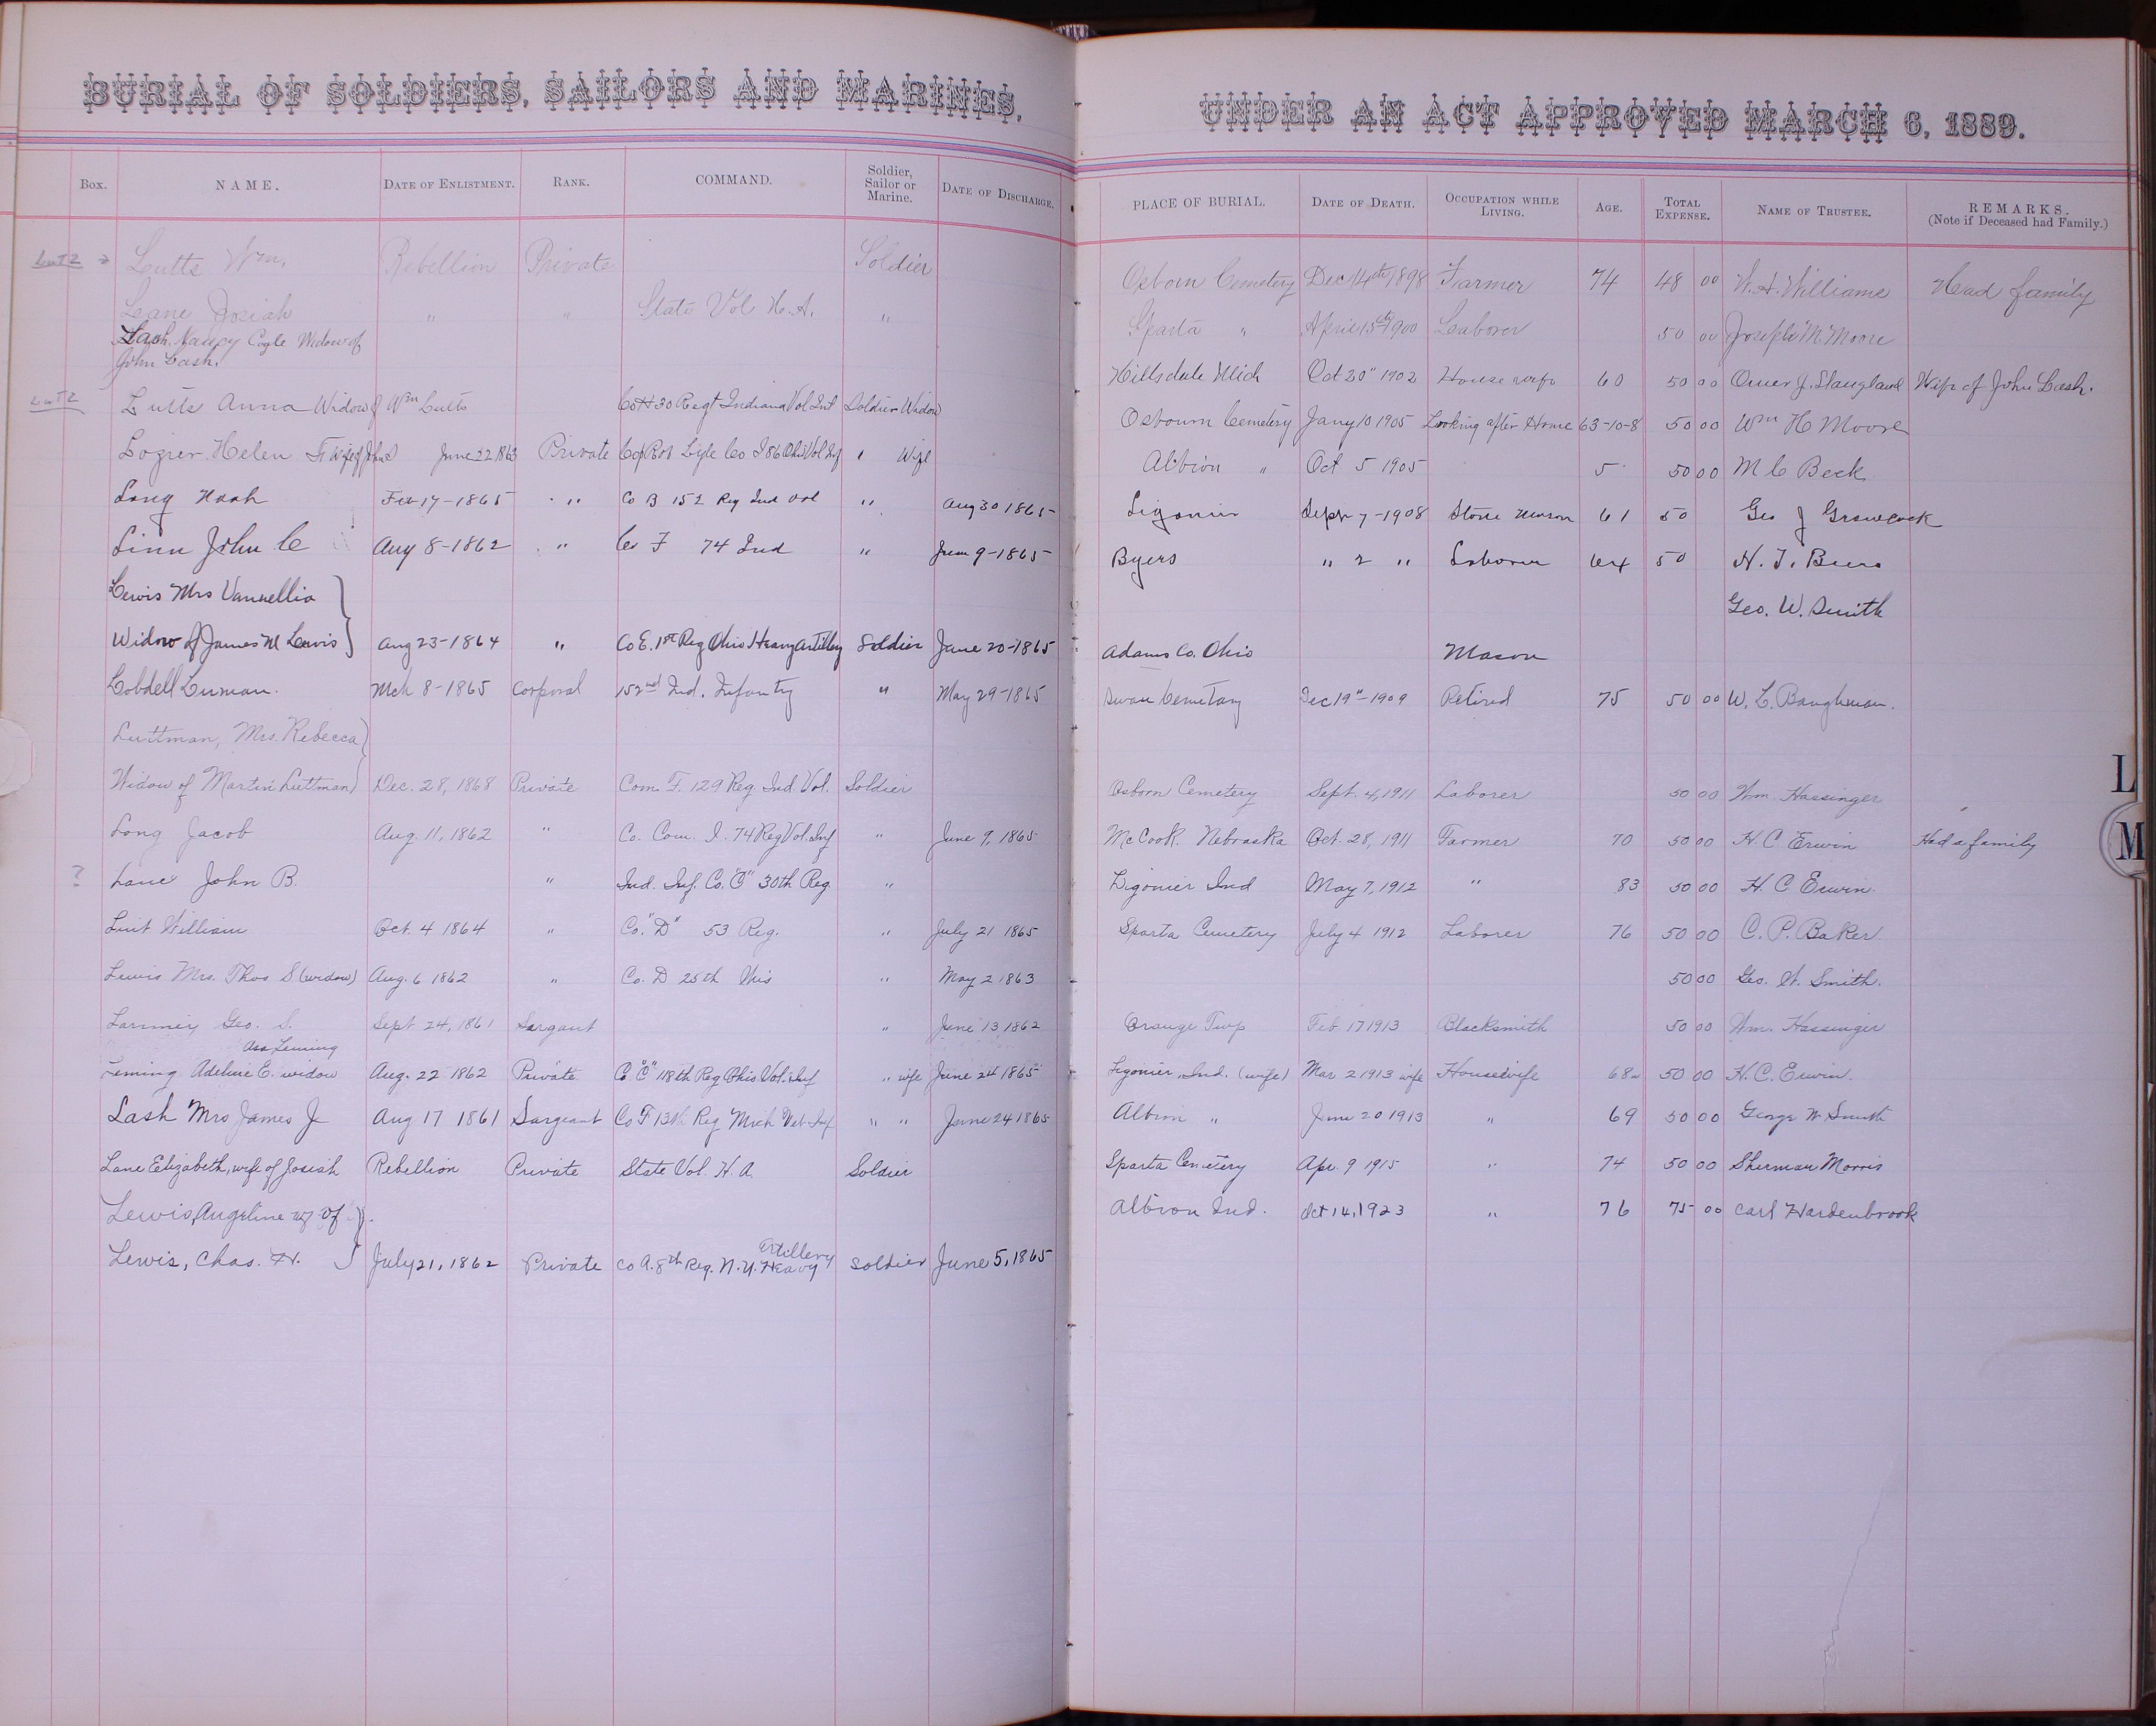 BURIAL OF SOLDIERS, SAILORS AND MARINES,
UNDER AN ACT APPROVED MARCH 6, 1889.
Box. NAME. DATE OF ENLISTMENT. RANK. COMMAND. Soldier, Sailor or Marine. DATE OF DISCHARGE. PLACE OF BURIAL. DATE OF DEATH. OCCUPATION WHILE LIVING. AGE. TOTAL EXPENSE. NAME OF TRUSTEE. REMARKS. (Note if Deceased had Family.)
Lutts Wm. Rebellion Private Soldier Osborn Cemetery Dec 14th 1898 Farmer 74 48 00 W. A. Williams Head family
Leane Josiah " " State Vol H. A. " Sparta " April 15th 1900 Laborer 50 00 Joseph M. Moore
Lash. Nancy Cogle Widow of
John Lash. Hillsdale Mich Oct 20" 1902 House wife 60 50 00 Omer J. Wife of John Lash.
Lutts Anna Widow of Wm Lutts Co H 30 Regt Indiana Vol Inf Soldier Widow Osbourn Cemetery Jany 10 1905 Looking after Home 63-10-8 50 00 Wm H Moore
Lozier Helen wife of June 22 1863 Private Co I 86 Ohio Vol Inf " Wife Albion " Oct 5 1905 5 50 00 M C Beck
Long Noah Feb 17-1865 " Co B 152 Reg Ind Vol " Aug 30 1865 Ligonier Sept 7-1908 Stone Mason 61 50 Geo J Growcock
Linn John C Aug 8-1862 " Co F 74 Ind " June 9-1865 Byers " 2 " Laborer 64 50 H. T.
Lewis Mrs Vannellia Geo. W. Smith
Widow of James M Lewis Aug 23-1864 " Co E. 1st Reg Ohio Heavy Artillery Soldier June 20-1865 Adams Co. Ohio Mason
Lobdell Luman. Mch 8-1865 Corporal 152nd Ind. Infantry " May 29-1865 Swan Cemetary Dec 19"-1909 Retired 75 50 00 W. L. Baughman.
Luttman, Mrs. Rebecca
Widow of Martin Luttman Dec. 28, 1868 Private Com. F. 129 Reg. Ind. Vol. Soldier Osborn Cemetery Sept. 4, 1911 Laborer 50 00 Wm. Hassinger
Long Jacob Aug. 11, 1862 " Co. Com. I. 74 Reg Vol. Inf " June 9, 1865 McCook. Nebraska Oct. 28, 1911 Farmer 70 50 00 H C Erwin Had a family
? Lane John B. " Ind. Inf. Co. "C" 30th Reg " Ligonier Ind May 7, 1912 " 83 50 00 H. C Erwin.
Luit William Oct. 4 1864 " Co. "D" 53 Reg. " July 21 1865 Sparta Cemetery July 4 1912 Laborer 76 50 00 C. P. Baker
Lewis Mrs. Thos S (widow) Aug. 6 1862 " Co. D 25th " May 2 1863 50 00 Geo. W. Smith.
Geo. S. Sept 24, 1861 Sargant " June 13, 1862 Orange Twp Feb 17 1913 Blacksmith 50 00 Wm. Hassinger
Asa Leming
Leming Adeline E. widow Aug. 22 1862 Private Co. "C" 118th Reg Ohio Vol. Inf " wife June 24 1865 Ligonier Ind. (wife) Mar 2 1913 wife Housewife 68 50 00 H. C. Erwin.
Lash Mrs James J Aug 17 1861 Sargeant Co F 13th Reg Mich Vet Inf " " June 24 1865 Albion " June 20 1913 " 69 50 00 George W Smith
Lane Elizabeth, wife of Josiah Rebellion Private State Vol. H. A. Soldier Sparta Cemetery Apr. 9 1915 " 74 50 00 Sherman Morris
Lewis, Angeline wf of Albion Ind. Oct 14, 1923 " 76 75 00 Carl Hardenbrook
Lewis, Chas. H. July 21, 1862 Private Co A. 8th Reg. N.Y. Heavy Artillery Soldier June 5, 1865
L
M